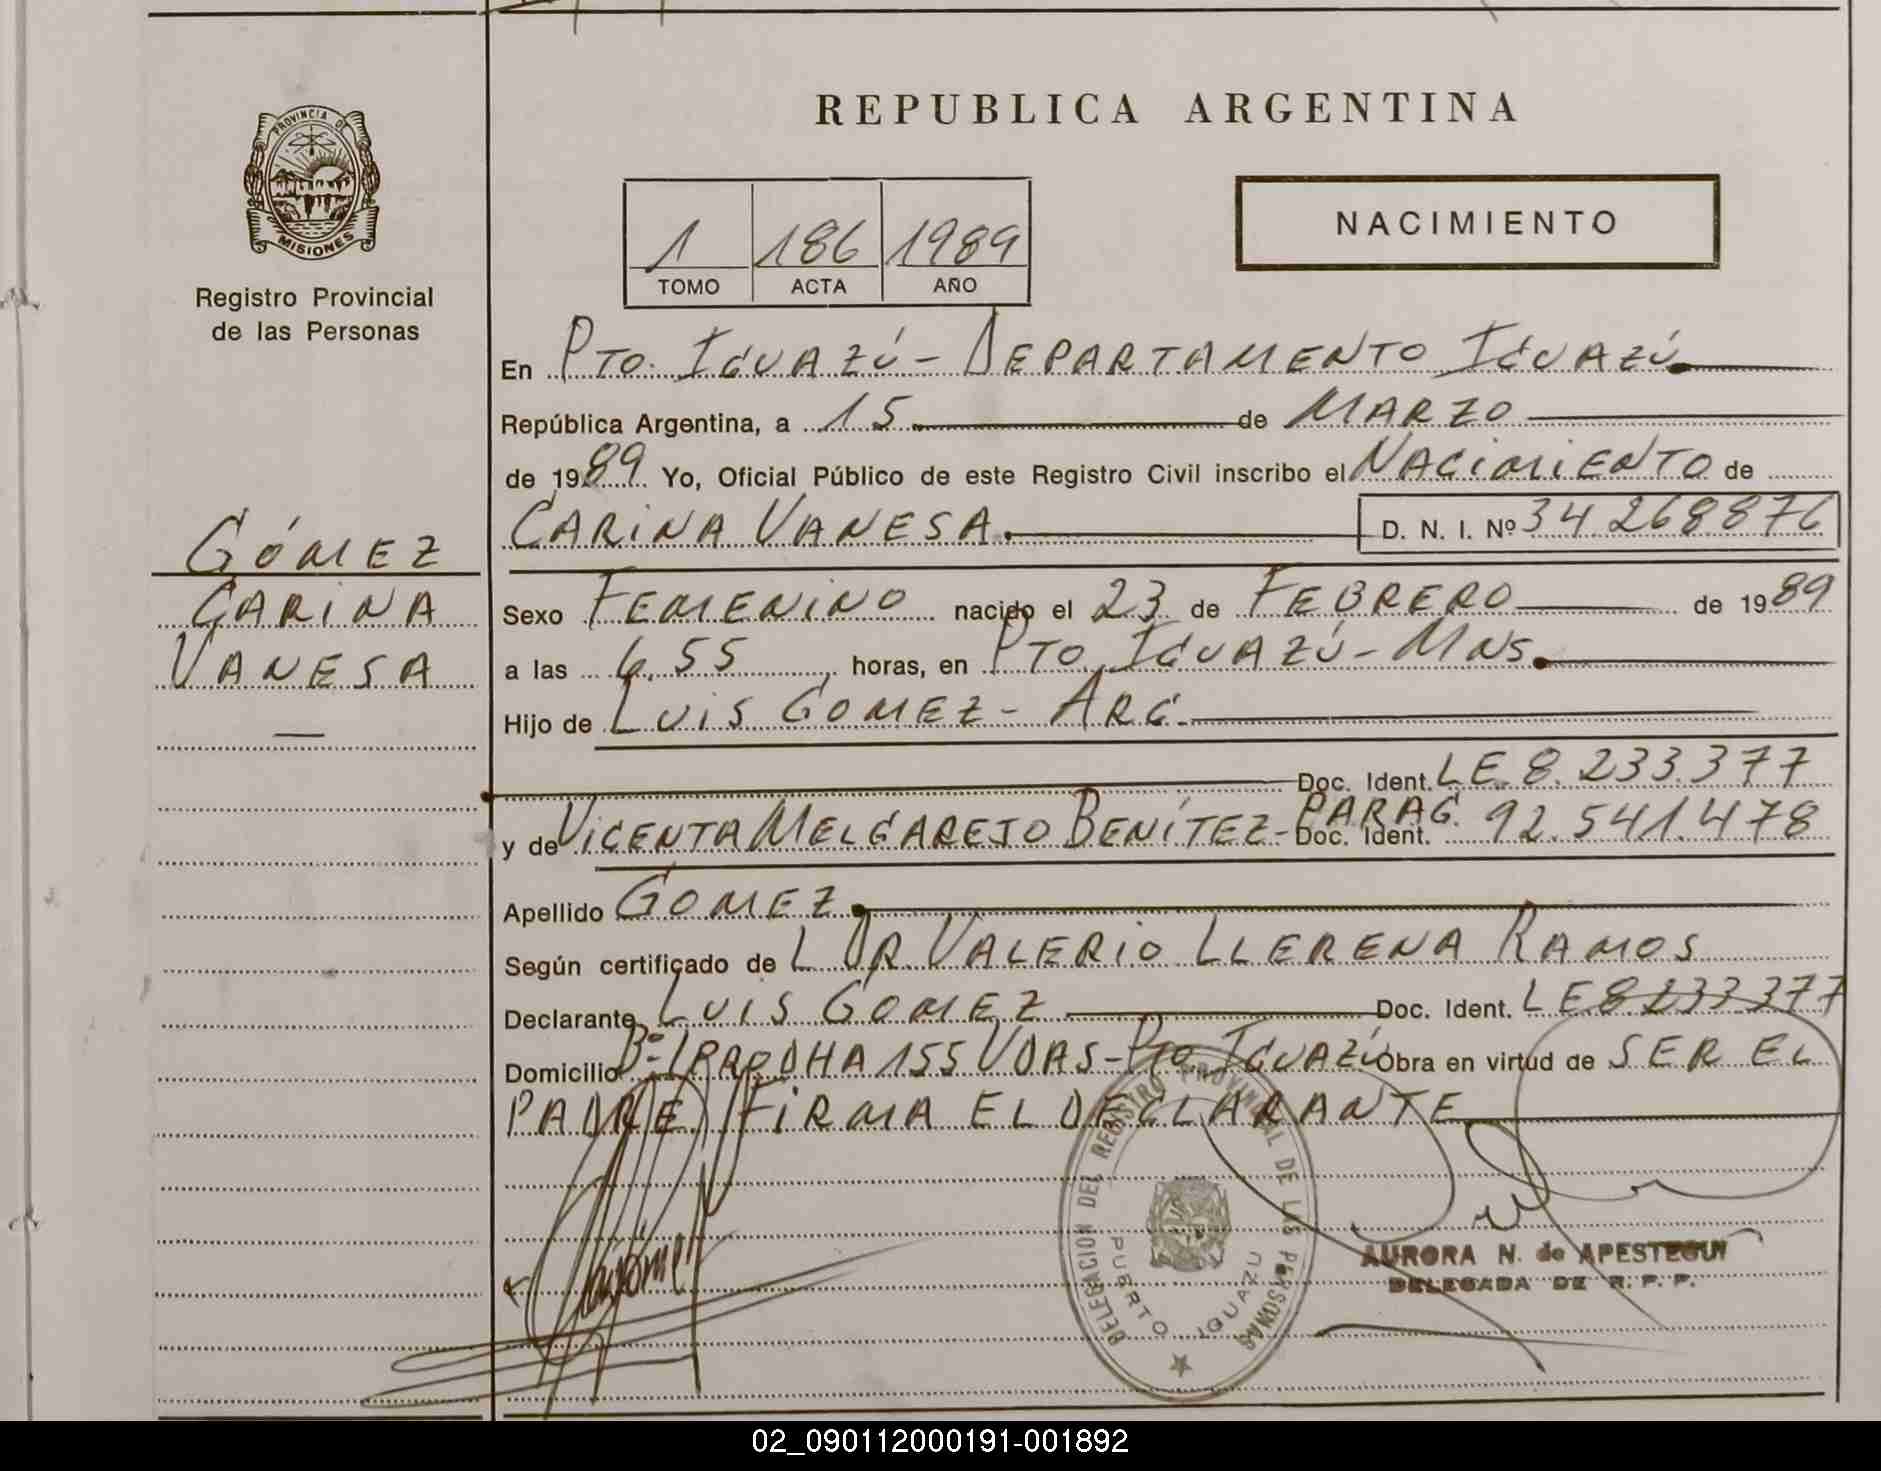 REPUBLICA ARGENTINA
PROVINCIA DE
MISIONES
Registro Provincial
de las Personas
1 186 1989
TOMO ACTA AÑO
NACIMIENTO
En PTO. IGUAZÚ - DEPARTAMENTO IGUAZÚ
República Argentina, a 15 de MARZO
de 1989 Yo, Oficial Público de este Registro Civil inscribo el NACIMIENTO de
CARINA VANESA D. N. I. Nº 34.268876
GÓMEZ
CARINA
VANESA
Sexo FEMENINO nacido el 23 de FEBRERO de 1989
a las 6,55 horas, en PTO. IGUAZÚ - MNS.
Hijo de LUIS GOMEZ - ARG.
Doc. Ident. LE 8.233.377
y de VICENTA MELGAREJO BENÍTEZ - PARAG. Doc. Ident. 92.541.478
Apellido GOMEZ
Según certificado de L DR. VALERIO LLERENA RAMOS
Declarante LUIS GOMEZ Doc. Ident. LE 8233377
Domicilio Bº 155 VDAS - PTO. IGUAZÚ Obra en virtud de SER EL
PADRE. FIRMA EL DECLARANTE
DELEGACION DEL REGISTRO PROVINCIAL DE LAS PERSONAS
PUERTO IGUAZU
AURORA N. de APESTEGUI
DELEGADA DE R. P. P.
02_090112000191-001892